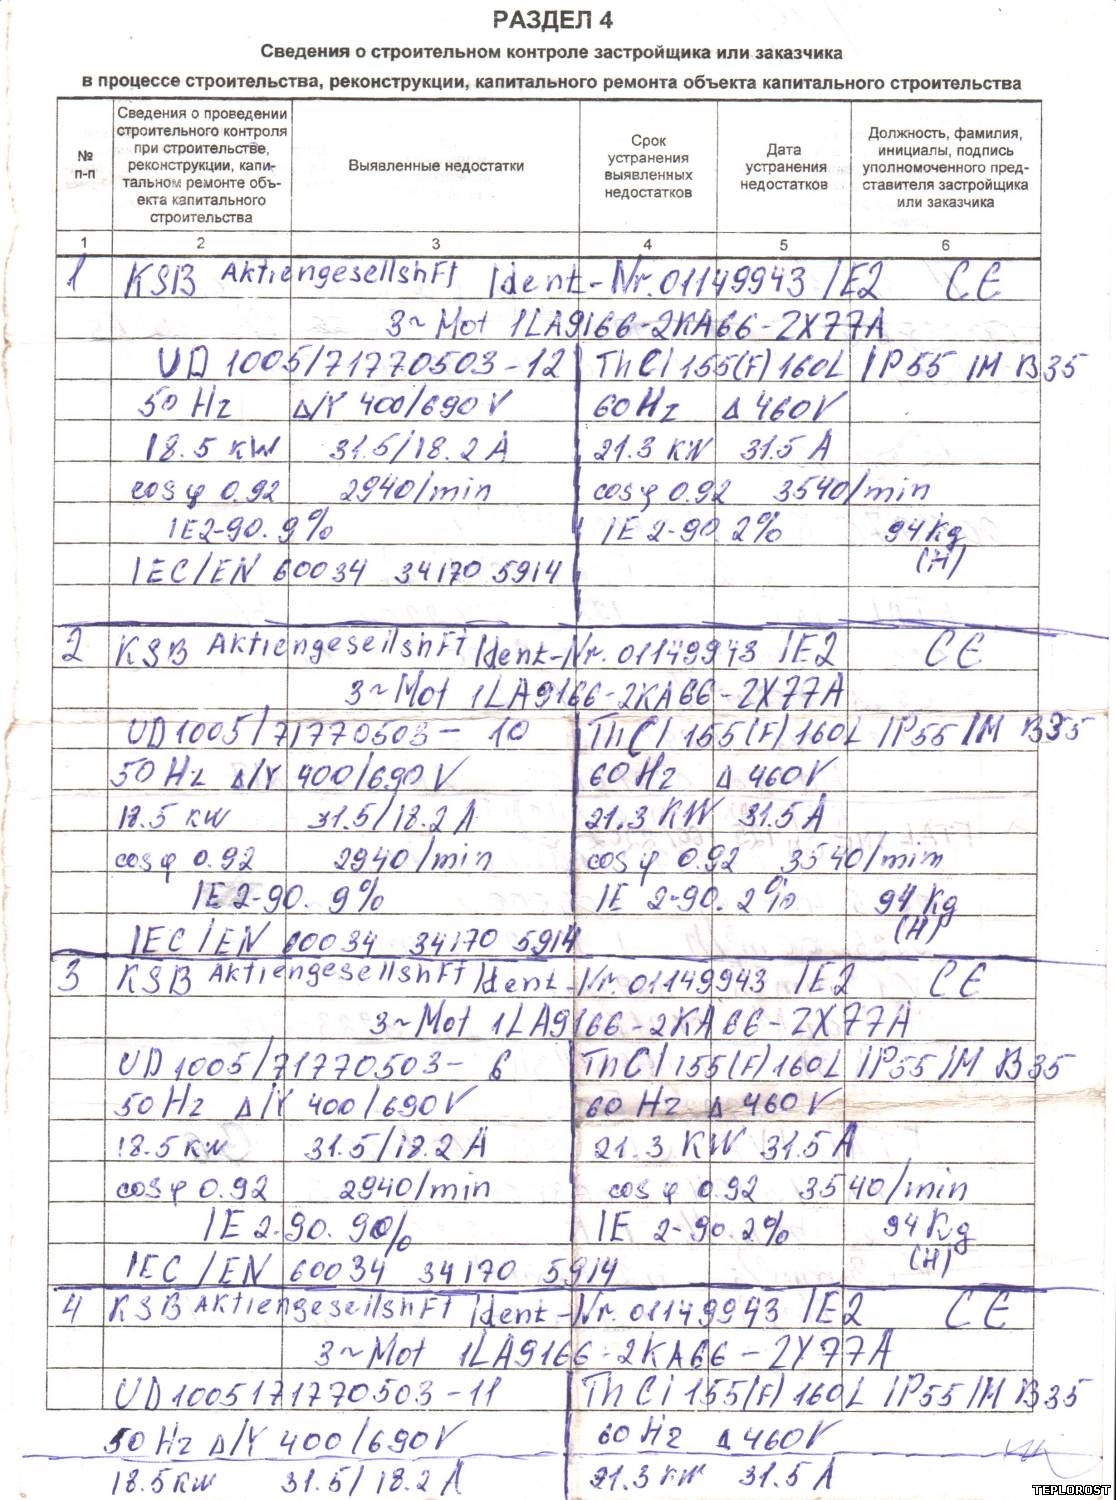 РАЗДЕЛ 4
Сведения о строительном контроле застройщика или заказчика
в процессе строительства, реконструкции, капитального ремонта объекта капитального строительства
№
п-п
Сведения о проведении
строительного контроля
при строительстве,
реконструкции, капи-
тальном ремонте объ-
екта капитального
строительства
Выявленные недостатки
Срок
устранения
выявленных
недостатков
Дата
устранения
недостатков
Должность, фамилия,
инициалы, подпись
уполномоченного пред-
ставителя застройщика
или заказчика
1 2 3 4 5 6
1 KSB AktiengesellshFt Ident-Nr. 01149943 IE2 CE
3~Mot 1LA9166-2KA66-ZX77A
UD 1005/71770503-12 ThCl 155(F) 160L IP55 IM B35
50 Hz Δ/Y 400/690 V 60 Hz Δ 460V
18.5 KW 31.5/18.2 A 21.3 KW 31.5 A
cos φ 0.92 2940/min cos φ 0.92 3540/min
IE2-90.9% IE 2-90.2% 94 Kg
(H)
IEC/EN 60034 34170 5914
2 KSB AktiengesellshFt Ident-Nr. 01149943 IE2 CE
3~Mot 1LA9166-2KA66-ZX77A
UD 1005/71770503-10 ThCl 155(F) 160L IP55 IM B35
50 Hz Δ/Y 400/690 V 60 Hz Δ 460V
18.5 KW 31.5/18.2 A 21.3 KW 31.5 A
cos φ 0.92 2940/min cos φ 0.92 3540/mim
IE 2-90.9% IE 2-90.2% 94 Kg
(H)
IEC/EN 60034 34170 5914
3 KSB AktiengesellshFt Ident-Nr. 01149943 IE2 CE
3~Mot 1LA9166-2KA66-ZX77A
UD 1005/71770503-6 ThCl 155(F) 160L IP55 IM B35
50 Hz Δ/Y 400/690 V 60 Hz Δ 460V
18.5 KW 31.5/18.2 A 21.3 KW 31.5 A
cos φ 0.92 2940/min cos φ 0.92 3540/min
IE 2-90.9% IE 2-90.2% 94 Kg
(H)
IEC/EN 60034 34170 5914
4 KSB AktiengesellshFt Ident-Nr. 01149943 IE2 CE
3~Mot 1LA9166-2KA66-ZX77A
UD 1005 171770503-11 ThCl 155(F) 160L IP55 IM B35
50 Hz Δ/Y 400/690 V 60 Hz Δ 460V
18.5 KW 31.5/18.2 A 21.3 KW 31.5 A
TEPLOROST